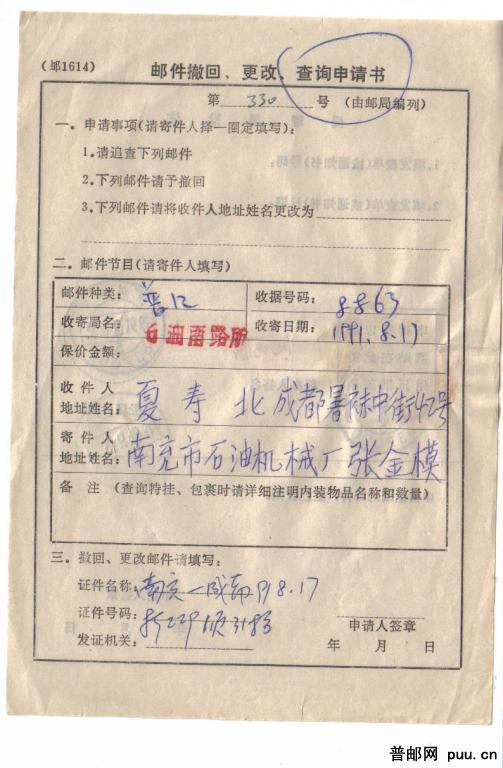 (邮1614)
邮件撤回、更改、查询申请书
第 330 号 (由邮局编列)
一.申请事项(请寄件人择一圈定填写):
1.请追查下列邮件
2.下列邮件请予撤回
3.下列邮件请将收件人地址姓名更改为
二.邮件节目(请寄件人填写)
邮件种类: 收据号码: 8863
收寄局名: 收寄日期: 1991.8.17
保价金额:
收件人
地址姓名: 夏寿 北成都暑袜中街42号
寄件人
地址姓名: 南充市石油机械厂张金模
备 注 (查询特挂、包裹时请详细注明内装物品名称和数量)
三.撤回、更改邮件请填写:
证件名称: 南充—成都 91 8.17
证件号码:
发证机关:
申请人签章
年 月 日
普邮网 puu.cn